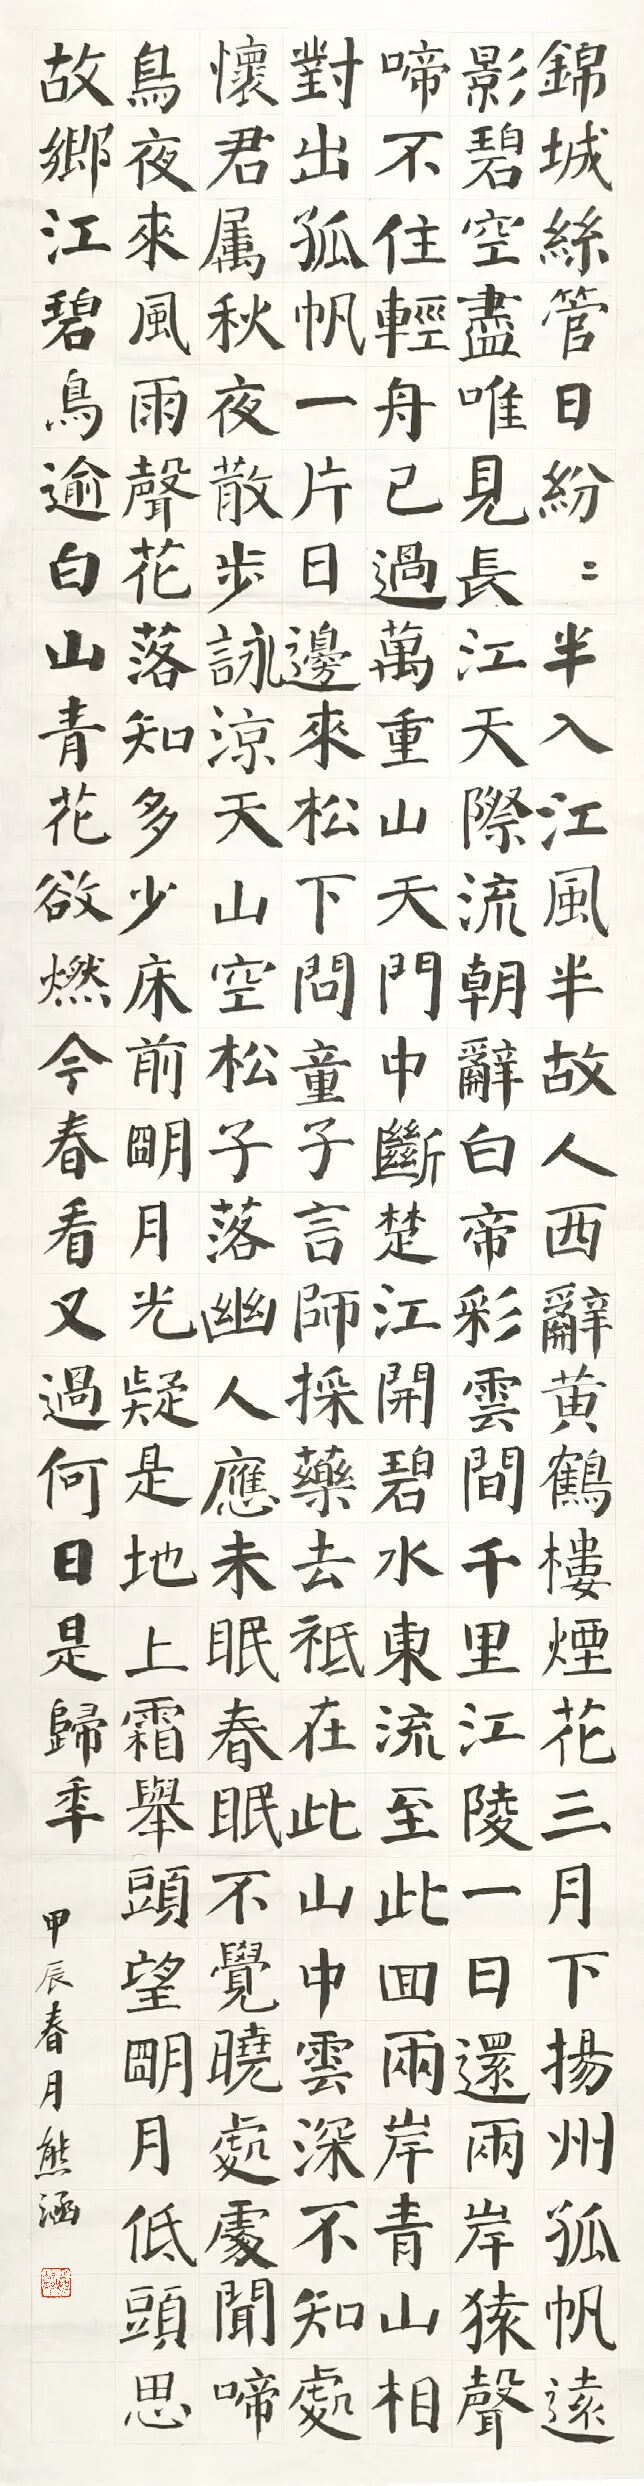 錦城絲管日紛〻半入江風半故人西辭黄鶴樓煙花三月下揚州孤帆遠
影碧空盡唯見長江天際流朝辭白帝彩雲間千里江陵一日還兩岸猿聲
啼不住輕舟已過萬重山天門中斷楚江開碧水東流至此囬兩岸青山相
對出孤帆一片日邊來松下問童子言師採藥去祗在此山中雲深不知處
懷君属秋夜散步詠涼天山空松子落幽人應未眠春眠不覺曉處處聞啼
鳥夜來風雨聲花落知多少床前朙月光疑是地上霜舉頭望朙月低頭思
故鄉江碧鳥逾白山青花欲燃今春看又過何日是歸年
甲辰春月熊涵